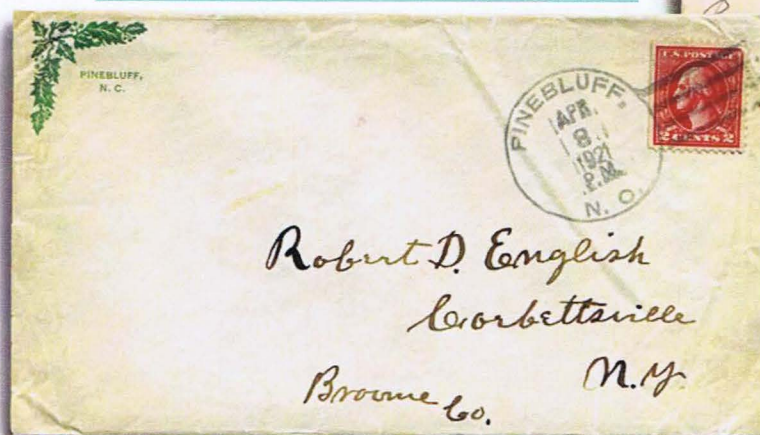 PINEBLUFF,
N. C.
PINEBLUFF,
APR.
8
1921
P.M.
N. C.
U.S. POSTAGE
2 CENTS 2
Robert D. English
Corbettsville
N.Y.
Broome Co.